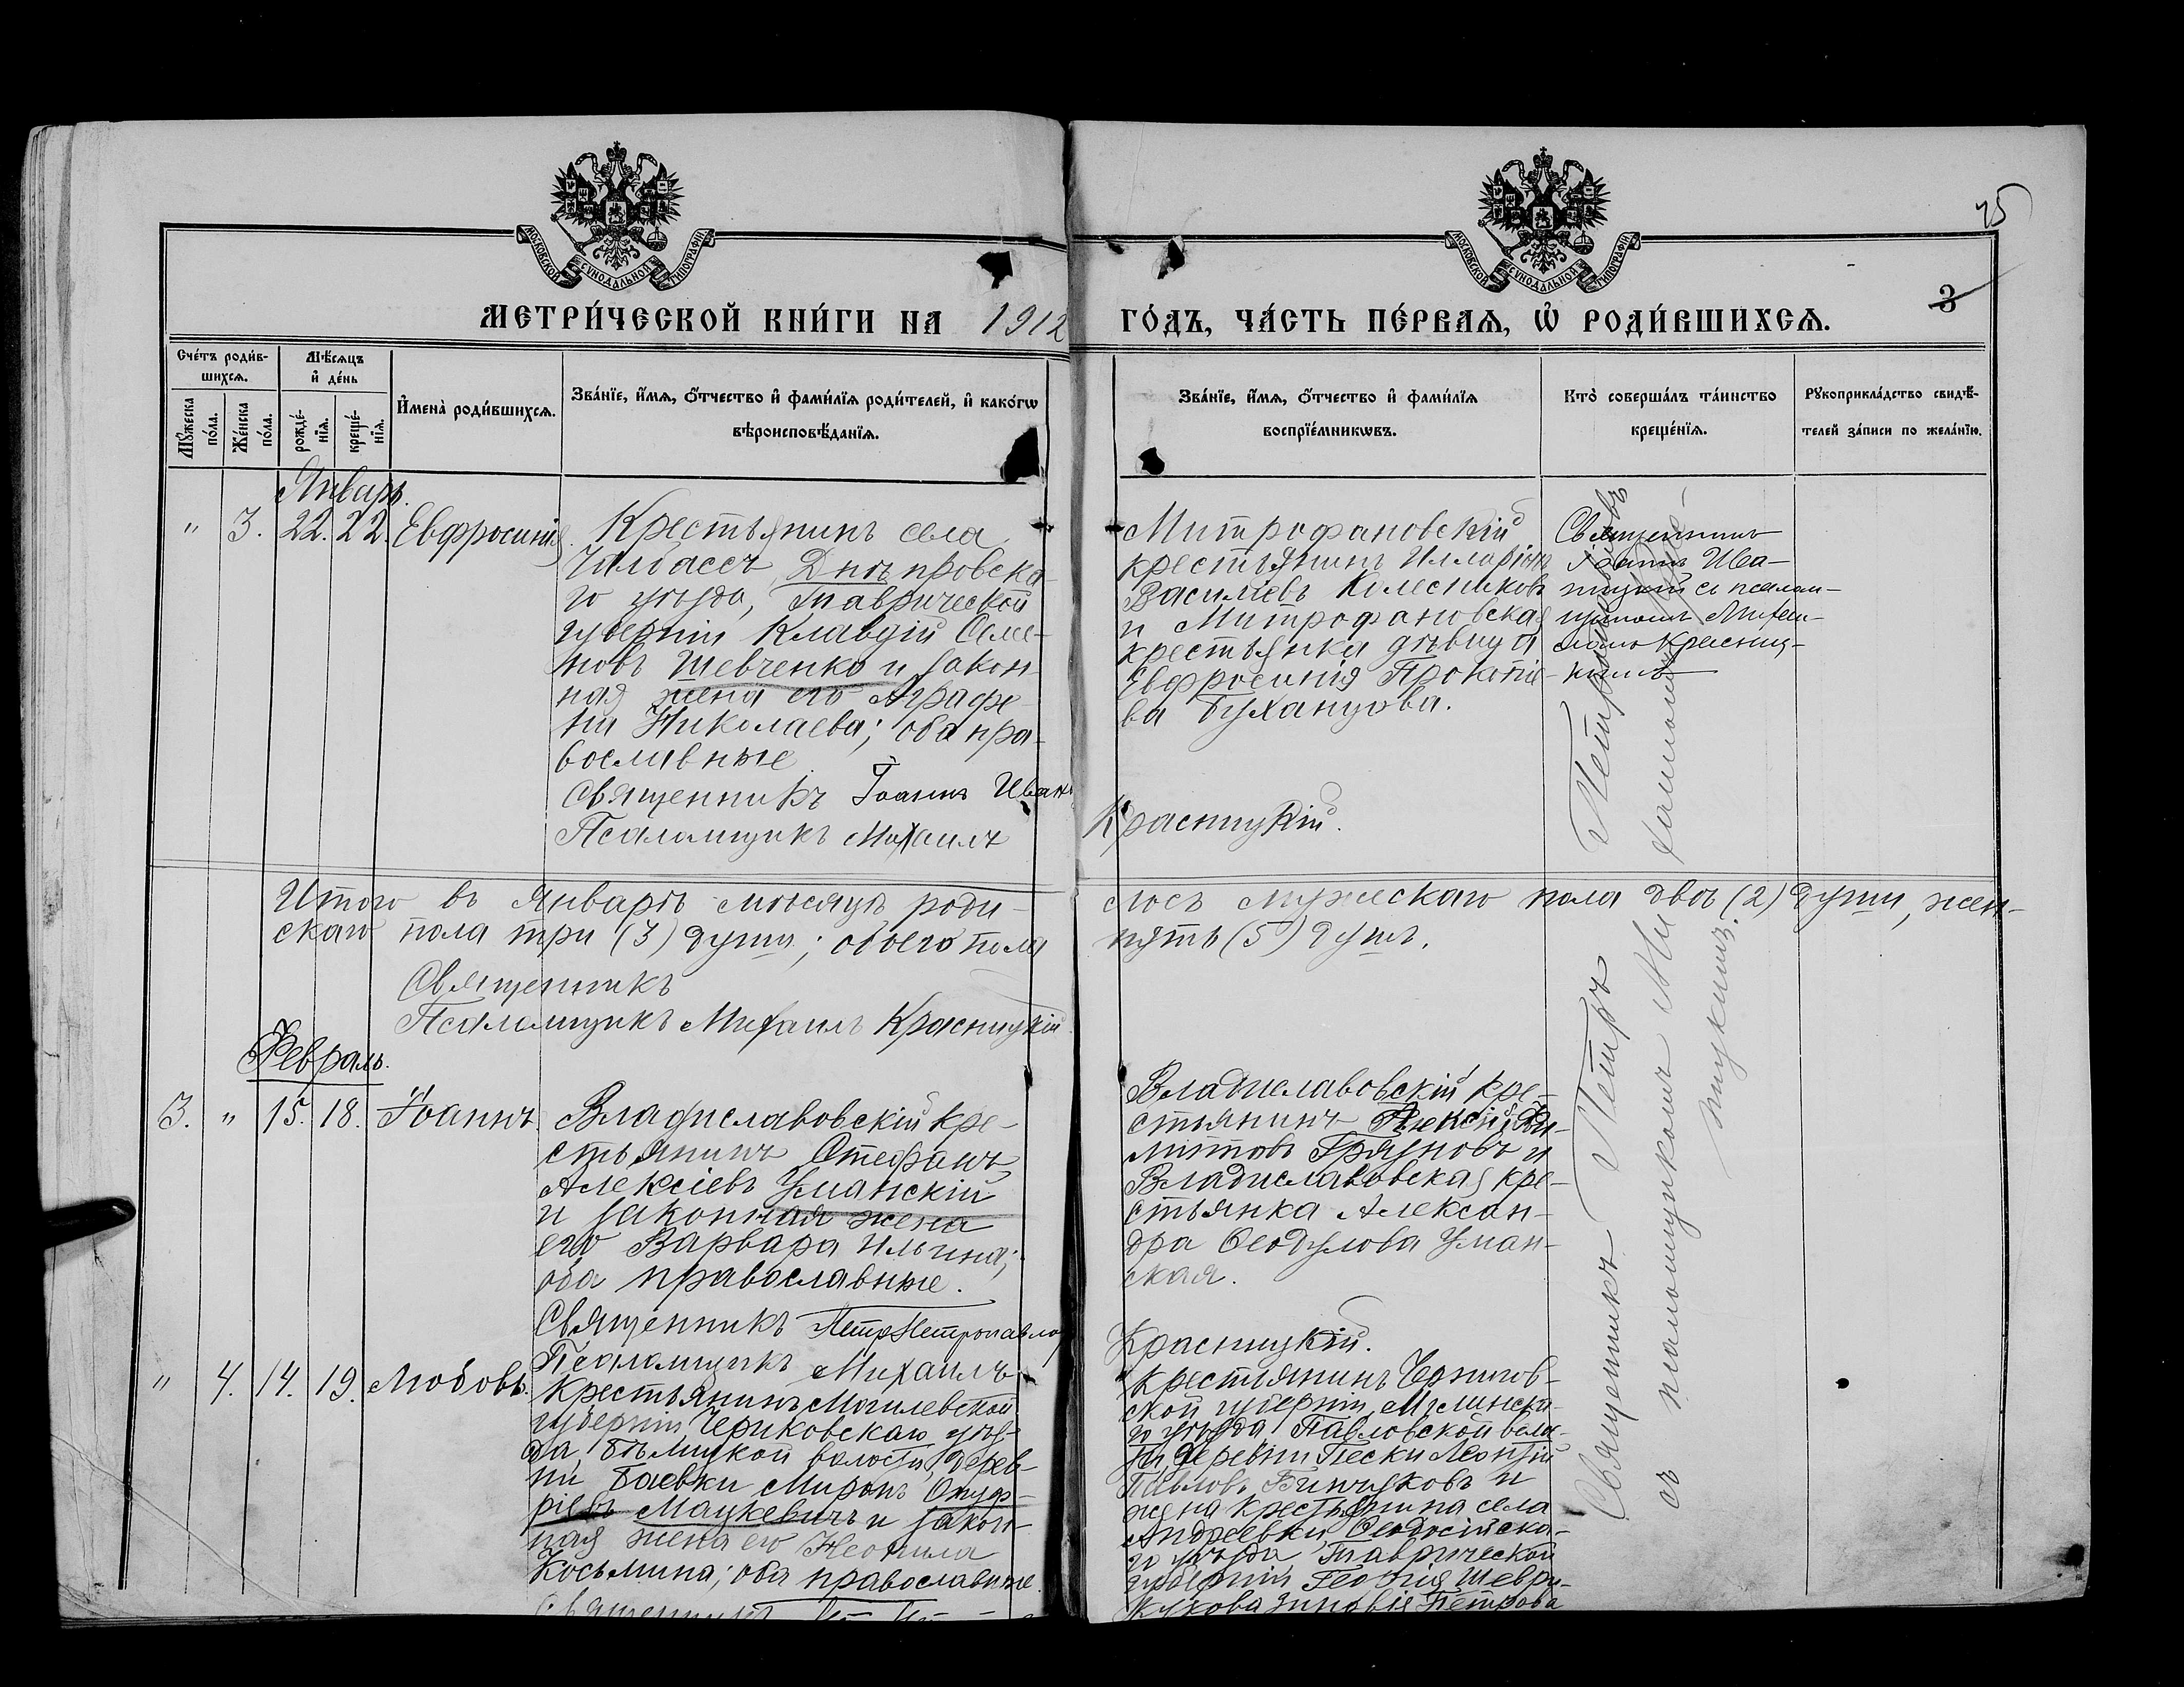 МОСКОВСКОЙ СѴНОДАЛЬНОЙ ТИПОГРАФІИ
МОСКОВСКОЙ СѴНОДАЛЬНОЙ ТИПОГРАФІИ
МЕТРИ́ЧЕСКОЙ КНИ́ГИ НА 1912
ГО́ДЪ, ЧА́СТЬ ПЕ́РВАѦ, Ѡ҆ РОДИ́ВШИХСѦ.
3
Сче́тъ роди́в-
шихсѧ.
Мѣ́сѧцъ
и҆ де́нь
Мꙋ́жеска по́ла.
Же́нска по́ла.
рожде́-
нїѧ.
креще́-
нїѧ.
И҆мена̀ роди́вшихсѧ.
Зва́нїе, и҆́мѧ, ѻ҆́тчество и҆ фами́лїѧ роди́телей, и҆ како́гѡ
вѣроисповѣ́данїѧ.
Зва́нїе, и҆́мѧ, ѻ҆́тчество и҆ фами́лїѧ
воспрїе́мникѡвъ.
Кто̀ соверша́лъ та́инство
креще́нїѧ.
Рꙋкоприкла́дство свидѣ́-
телей за́писи по жела́нїю.
Январь.
" 3. 22. 22. Евфросинія
Крестьянинъ села
Чалбассъ Днѣпровска-
го уѣзда, Таврической
губерніи Клавдій Семе-
новъ Шевченко и закон-
ная жена его Аграфе-
на Николаева; оба пра-
вославные
Священникъ Іоаннъ Иван
Псаломщикъ Михаилъ
Митрофановскій
крестьянинъ Илларіонъ
Васильевъ Колесниковъ
и Митрофановская
крестьянка дѣвица
Евфросинія Прокопіе-
ва Буханцова.
Красницкій.
Священникъ
Іоаннъ Ива-
ницкій съ псалом-
щикомъ Михаи-
ломъ Красниц-
кимъ
Итого въ Январѣ мѣсяцѣ роди-
лось мужескаго пола двѣ (2) души, жен-
скаго пола три (3) души; обоего пола
пять (5) душъ.
Священникъ
Псаломщикъ Михаилъ Красницкій
Февраль.
3. " 15. 18. Іоаннъ
Владиславовскій кре-
стьянинъ Стефанъ
Алексіевъ Уманскій
и законная жена
его Варвара Ильина;
оба православные.
Священникъ Петръ Петропавлов
Псаломщикъ Михаилъ
Владиславовскій кре-
стьянинъ Алексій Ди-
митріевъ Грязновъ и
Владиславовская кре-
стьянка Алексан-
дра Ѳеодулова Уман-
ская.
Красницкій.
" 4. 14. 19. Любовь.
Крестьянинъ Могилевской
губерніи, Чериковскаго уѣз-
да, волости, дерев-
ни Баевки Миронъ Онуф-
ріевъ Мацкевичъ и закон-
ная жена его Неонила
Косьмина; оба православные.
Крестьянинъ Чернигов-
ской губерніи, Мглинска-
го уѣзда Павловской воло-
сти, деревни Пески Леонтій
Павловъ и
жена крестьянина села
Андреевки, Ѳеодосійска-
го уѣзда, Таврической
губерніи Георгія Шевру-
Жукова Зиновія Петрова
Священникъ Петръ Петропавловъ
съ псаломщикомъ Ми
хаиломъ Крас-
ницкимъ.